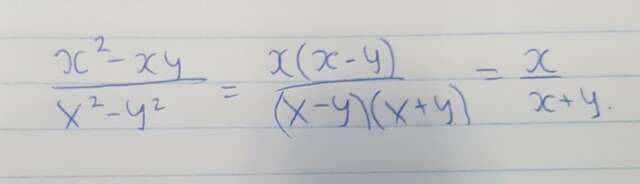 \frac{x^2 - xy}{x^2 - y^2} = \frac{x(x-y)}{(x-y)(x+y)} = \frac{x}{x+y}.